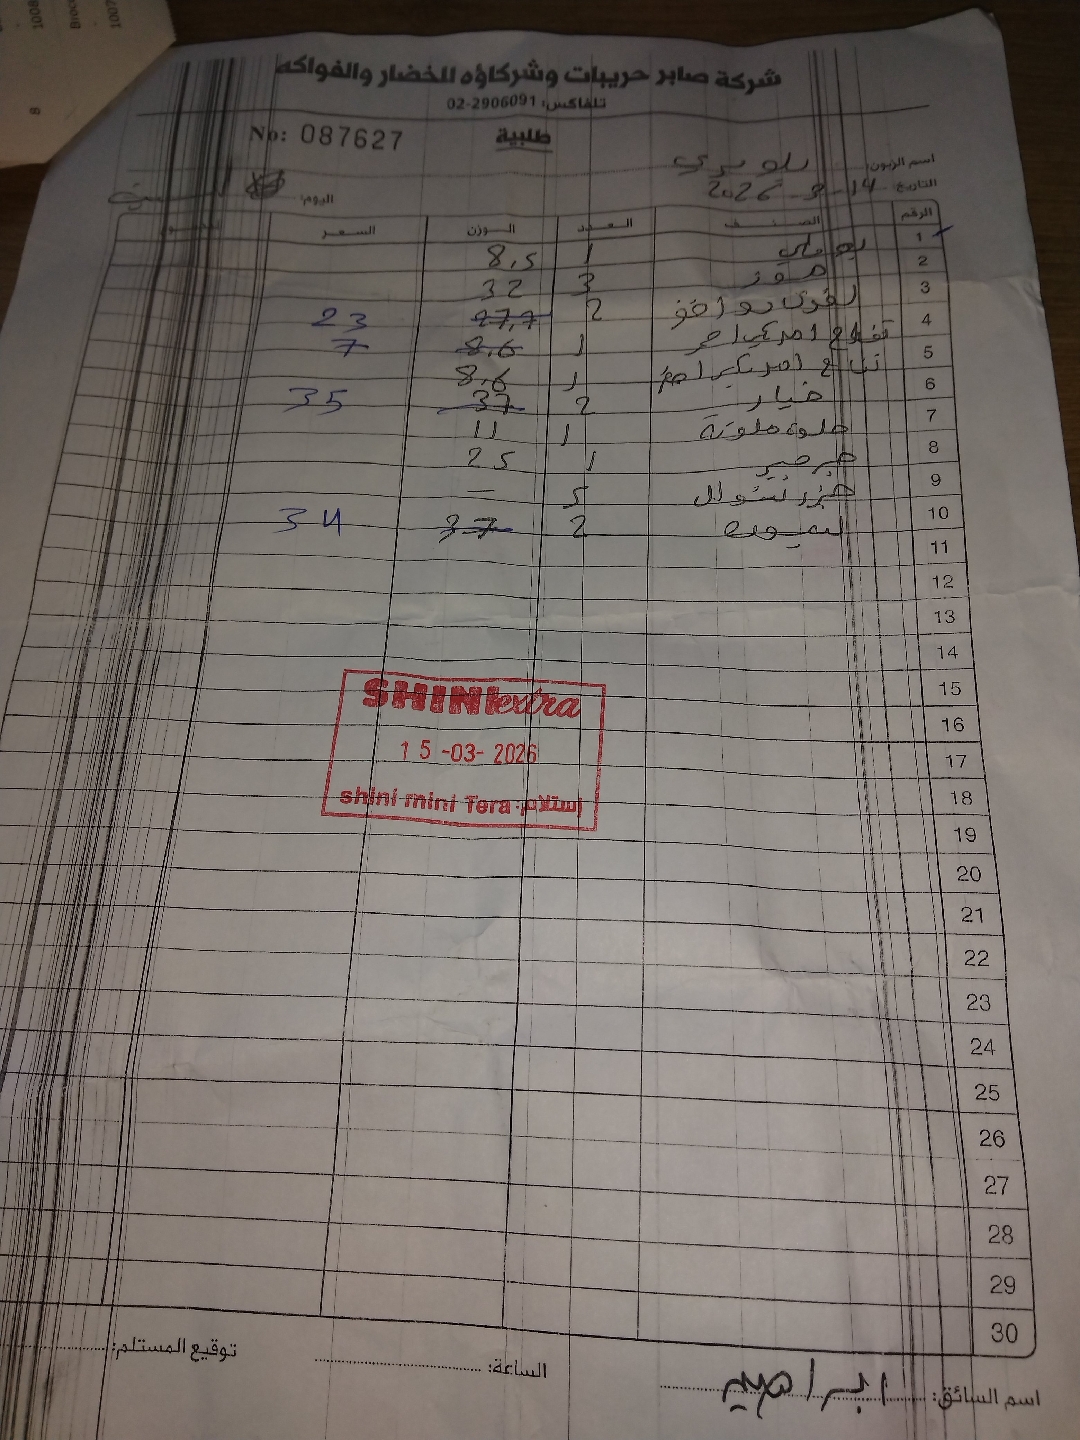 شركة صابر حريبات وشركاؤه للخضار والفواكه
تلفاكس: 02-2906091
No: 087627
طلبية
اسم الزبون:
التاريخ: 14-3-2026
اليوم: السبت
الرقم الصنف العدد الوزن السعر
1 1 8,5
2 موز 3 32
3 2 27,7 23
4 تفاح امريكي احمر 1 8.6 7
5 تفاح امريكي اصفر 1 8.6
6 خيار 2 37 35
7 حلوة ملونة 1 11
8 جرجير 1 25
9 جزر 5 –
10 ليمون 2 37 34
11
12
13
14
15
16
17
18
19
20
21
22
23
24
25
26
27
28
29
30
SHINI extra
15-03-2026
إستلام: shini mini Tera
اسم السائق: ابراهيم
الساعة:
توقيع المستلم:
1008
Broc
1007
8